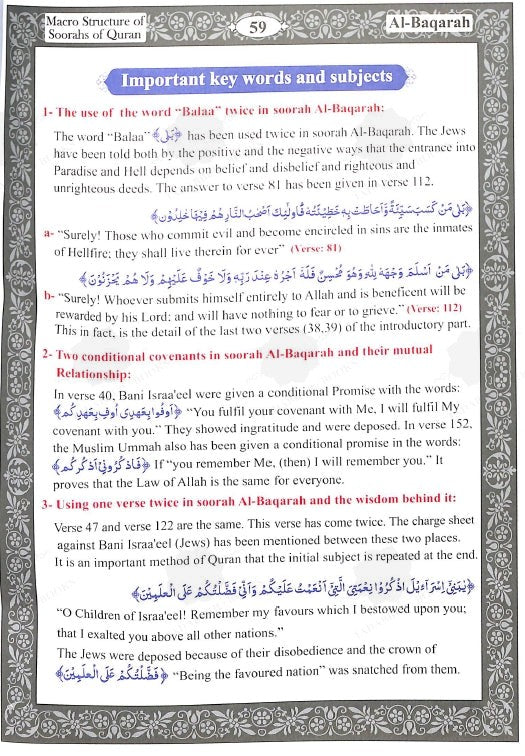 Macro Structure of
Soorahs of Quran
59
Al-Baqarah
Important key words and subjects
1- The use of the word “Balaa” twice in soorah Al-Baqarah:
The word “Balaa” ﴿بَلٰى﴾ has been used twice in soorah Al-Baqarah. The Jews
have been told both by the positive and the negative ways that the entrance into
Paradise and Hell depends on belief and disbelief and righteous and
unrighteous deeds. The answer to verse 81 has been given in verse 112.
﴿بَلٰى مَنْ كَسَبَ سَيِّئَةً وَّاَحَاطَتْ بِهٖ خَطِيْٓئَتُهٗ فَاُولٰٓئِكَ اَصْحٰبُ النَّارِ هُمْ فِيْهَا خٰلِدُوْنَ﴾
a- “Surely! Those who commit evil and become encircled in sins are the inmates
of Hellfire; they shall live therein for ever” (Verse: 81)
﴿بَلٰى مَنْ اَسْلَمَ وَجْهَهٗ لِلّٰهِ وَهُوَ مُحْسِنٌ فَلَهٗٓ اَجْرُهٗ عِنْدَ رَبِّهٖ وَلَا خَوْفٌ عَلَيْهِمْ وَلَا هُمْ يَحْزَنُوْنَ﴾
b- “Surely! Whoever submits himself entirely to Allah and is beneficent will be
rewarded by his Lord; and will have nothing to fear or to grieve.” (Verse: 112)
This in fact, is the detail of the last two verses (38,39) of the introductory part.
2- Two conditional covenants in soorah Al-Baqarah and their mutual
Relationship:
In verse 40, Bani Israa'eel were given a conditional Promise with the words:
﴿اَوْفُوْا بِعَهْدِيْٓ اُوْفِ بِعَهْدِكُمْ﴾ “You fulfil your covenant with Me, I will fulfil My
covenant with you.” They showed ingratitude and were deposed. In verse 152,
the Muslim Ummah also has been given a conditional promise in the words:
﴿فَاذْكُرُوْنِيْٓ اَذْكُرْكُمْ﴾ If “you remember Me, (then) I will remember you.” It
proves that the Law of Allah is the same for everyone.
3- Using one verse twice in soorah Al-Baqarah and the wisdom behind it:
Verse 47 and verse 122 are the same. This verse has come twice. The charge sheet
against Bani Israa'eel (Jews) has been mentioned between these two places.
It is an important method of Quran that the initial subject is repeated at the end.
﴿يٰبَنِيْٓ اِسْرَآءِيْلَ اذْكُرُوْا نِعْمَتِيَ الَّتِيْٓ اَنْعَمْتُ عَلَيْكُمْ وَاَنِّيْ فَضَّلْتُكُمْ عَلَى الْعٰلَمِيْنَ﴾
“O Children of Israa'eel! Remember my favours which I bestowed upon you;
that I exalted you above all other nations.”
The Jews were deposed because of their disobedience and the crown of
﴿فَضَّلْتُكُمْ عَلَى الْعٰلَمِيْنَ﴾ “Being the favoured nation” was snatched from them.